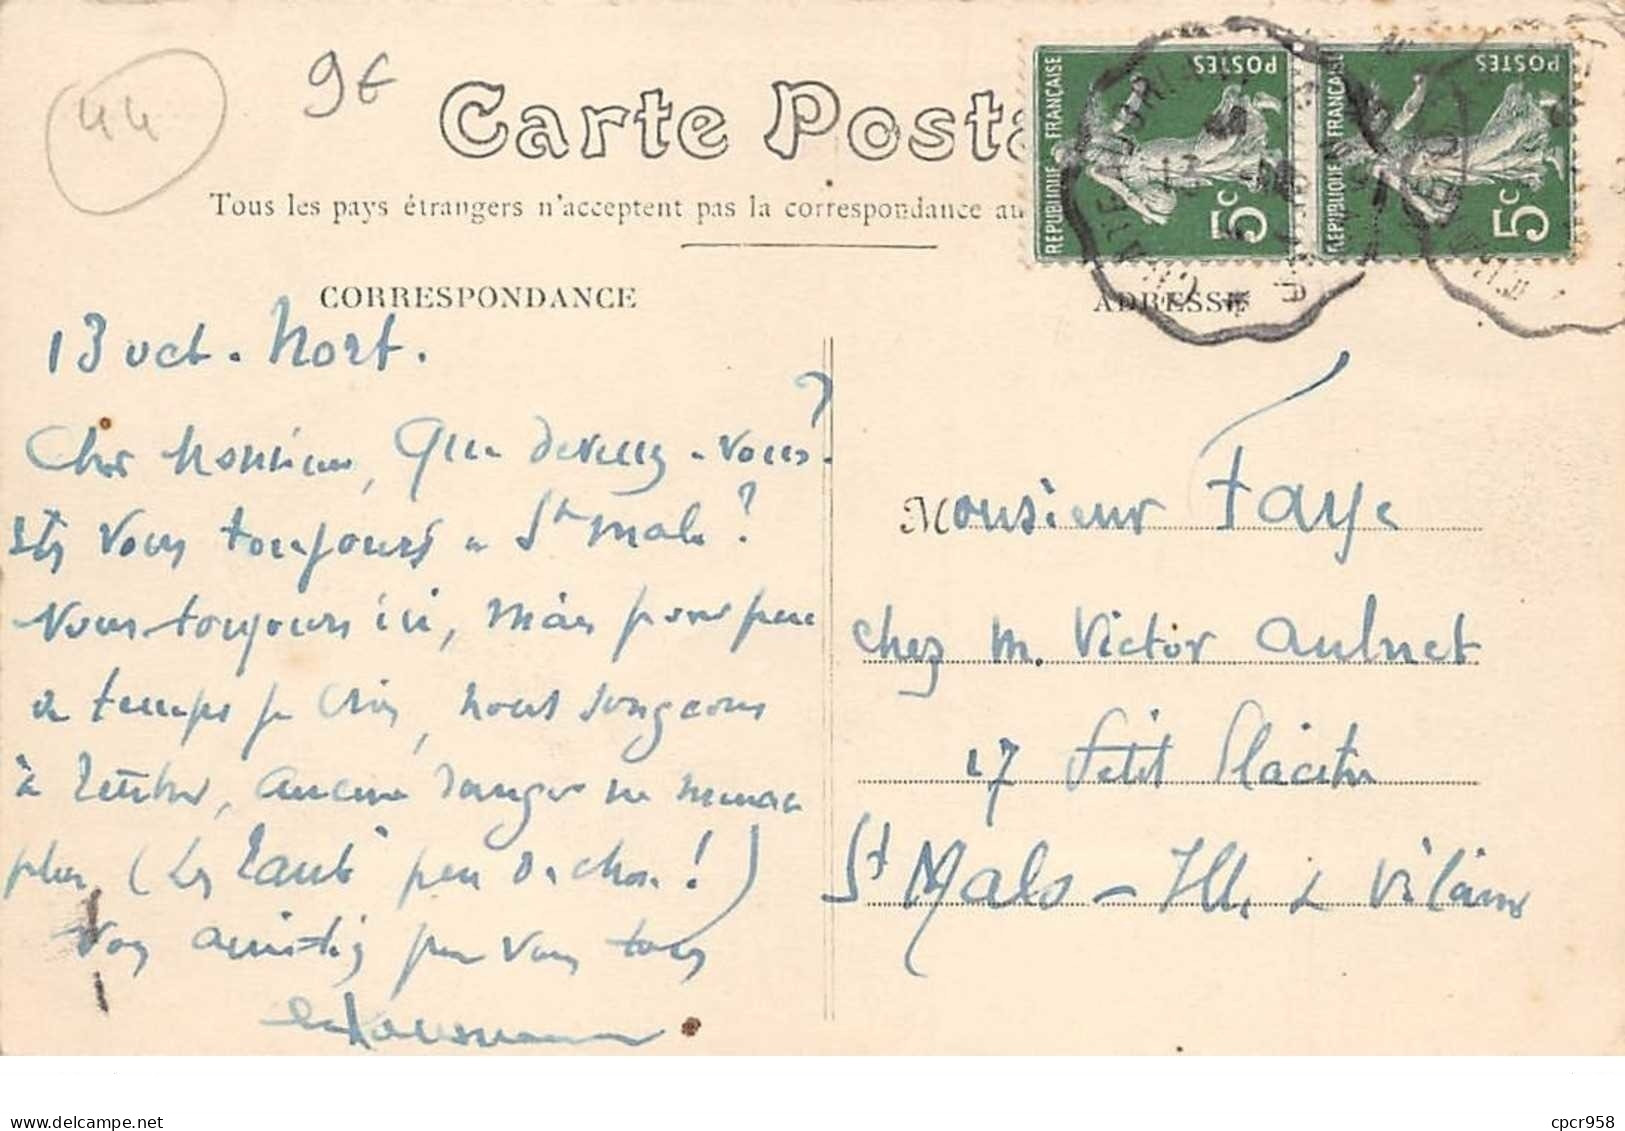 44
9€
Carte Posta
Tous les pays étrangers n'acceptent pas la correspondance au
RÉPUBLIQUE FRANÇAISE
POSTES
5c
RÉPUBLIQUE FRANÇAISE
POSTES
5c
CORRESPONDANCE
ADRESSE
13 oct. Nort.
Cher Monsieur, Que devenez-vous?
Etes vous toujours à St Malo?
Nous toujours ici, mais pour peu
de temps je crois, nous songeons
à rentrer, aucun danger ne menace
plus (Les Zanti peu de chose!)
Vos amitiés pour vous tous
Monsieur Faye
chez M. Victor Aulnet
17 Petit Placitre
St Malo - Ille & Vilaine
cpcr958